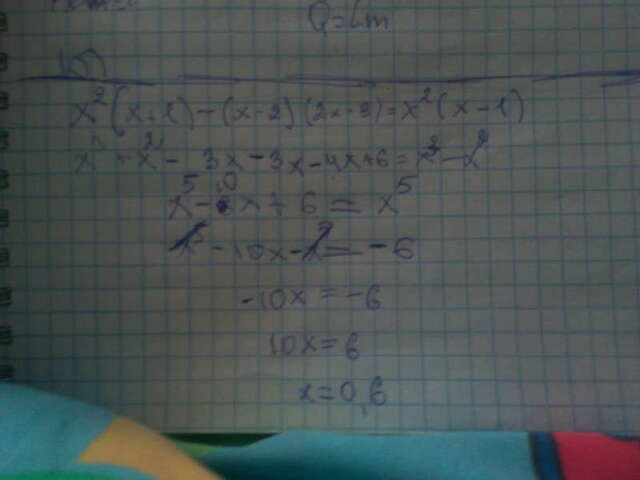 Q=Lm
x²(x+1)-(x-2)(2x-3)=x²(x-1)
x³+x²-3x-3x-4x+6=x³-x²
x⁵-10x+6=x⁵
-10x-x⁵=-6
-10x=-6
10x=6
x=0,6